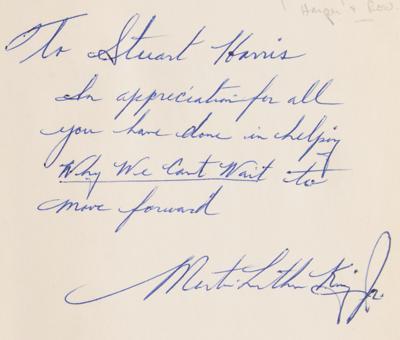 Harper & Row.
To Stuart Harris
In appreciation for all
you have done in helping
Why We Can't Wait to
move forward
Martin Luther King Jr.